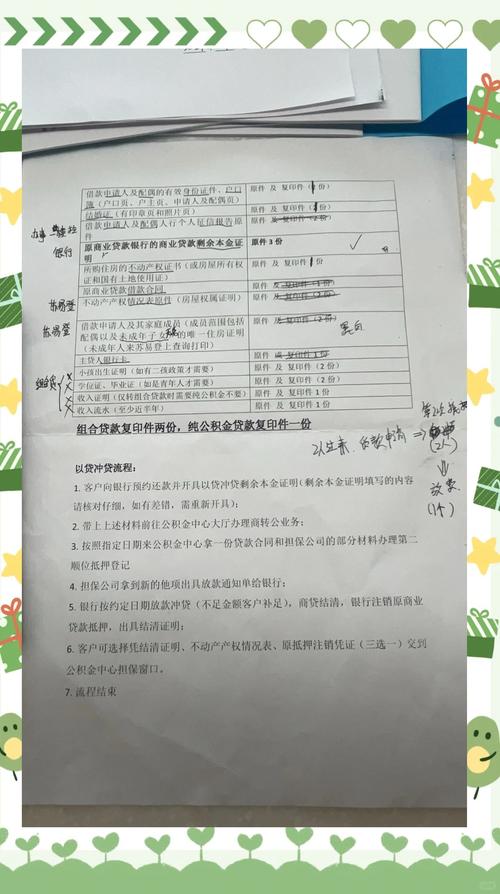 借款申请人及配偶的有效身份证件、户口簿（户口页、户主页、申请人及配偶页） 原件 及 复印件（1份）
结婚证（有印章页和照片页） 原件 及 复印件（1份）
借款申请人及配偶人行个人征信报告原件 原件 及 复印件（2份）
银行
原商业贷款银行的商业贷款剩余本金证明 原件3份
所购住房的不动产权证书（或房屋所有权证和国有土地使用证） 原件 及 复印件1份
原商业贷款借款合同 原件 及 复印件（1份）
苏易登 不动产权情况表原件（房屋权属证明） 原件 及 复印件（2份）
苏易登
借款申请人及其家庭成员（成员范围包括配偶以及未成年子女）的唯一住房证明（未成年人来苏易登上查询打印） 原件 及 复印件（2份）
主贷人银行卡 原件 或 复印件1份
小孩出生证明（如有二孩政策才需要） 原件 及 复印件（2份）
学位证、毕业证（如是青年人才需要） 原件 及 复印件（2份）
收入证明（仅转组合贷款时需要纯公积金不要） 原件 及 复印件1份
收入流水（至少近半年） 原件 及 复印件1份
组合贷款复印件两份，纯公积金贷款复印件一份
贷款申请
(2人)
放款
(1个)
以贷冲贷流程：
1. 客户向银行预约还款并开具以贷冲贷剩余本金证明（剩余本金证明填写的内容
请核对仔细，如有差错，需重新开具）；
2. 带上上述材料前往公积金中心大厅办理商转公业务；
3. 按照指定日期来公积金中心拿一份贷款合同和担保公司的部分材料办理第二
顺位抵押登记
4. 担保公司拿到新的他项出具放款通知单给银行；
5. 银行按约定日期放款冲贷（不足金额客户补足），商贷结清，银行注销原商业
贷款抵押，出具结清证明；
6. 客户可选择凭结清证明、不动产产权情况表、原抵押注销凭证（三选一）交到
公积金中心担保窗口。
7. 流程结束